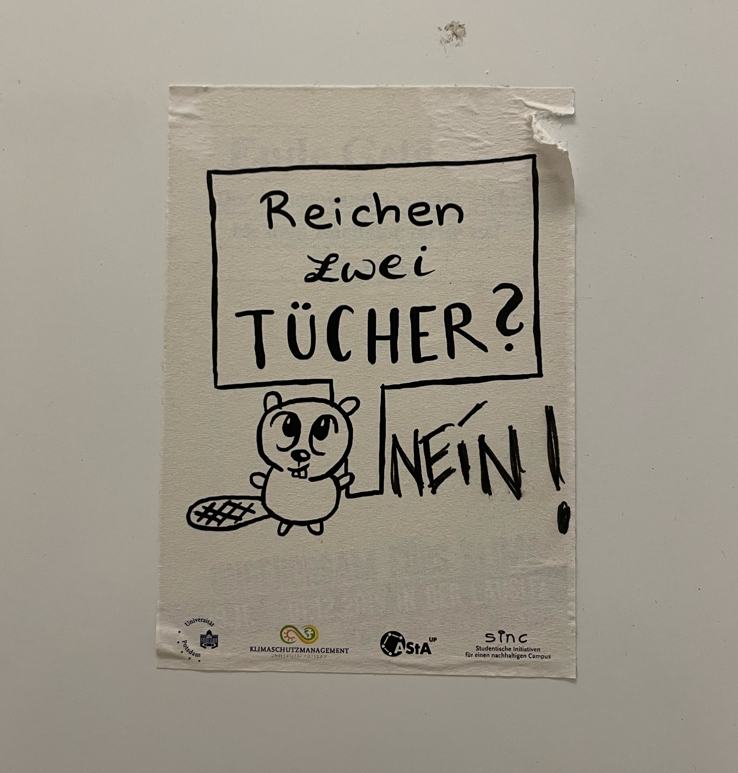 Reichen
zwei
TÜCHER?
NEÍN!
Universität
Potsdam
KLIMASCHUTZMANAGEMENT
UNIVERSITÄT POTSDAM
AStA UP
sinc
Studentische Initiativen
für einen nachhaltigen Campus